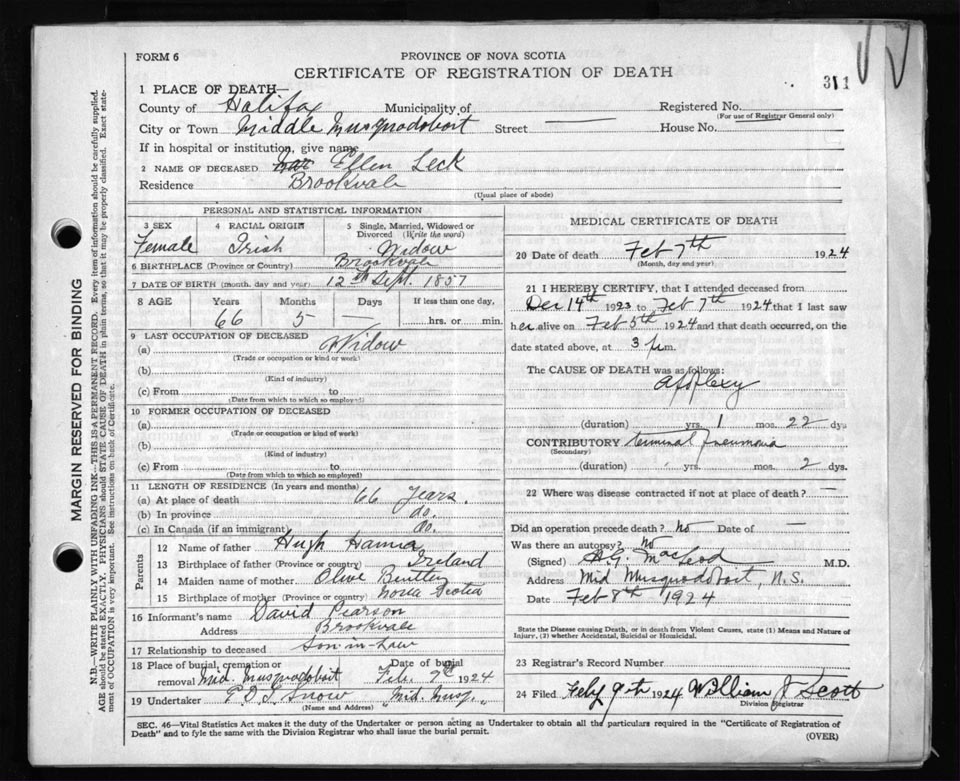 FORM 6
PROVINCE OF NOVA SCOTIA
CERTIFICATE OF REGISTRATION OF DEATH
311
1 PLACE OF DEATH—
County of Halifax Municipality of Registered No.
(For use of Registrar General only)
City or Town Middle Musquodoboit Street House No.
If in hospital or institution, give name
2 NAME OF DECEASED Ellen Leck
Residence Brookvale
(Usual place of abode)
PERSONAL AND STATISTICAL INFORMATION
3 SEX 4 RACIAL ORIGIN 5 Single, Married, Widowed or Divorced (Write the word)
Female Irish Widow
6 BIRTHPLACE (Province or Country) Brookvale
7 DATE OF BIRTH (month, day and year) 12th Sept. 1857
8 AGE Years Months Days If less than one day,
66 5 — hrs. or min.
9 LAST OCCUPATION OF DECEASED
(a) Widow
(Trade or occupation or kind or work)
(b)
(Kind of industry)
(c) From to
(Date from which to which so employed)
10 FORMER OCCUPATION OF DECEASED
(a)
(Trade or occupation or kind of work)
(b)
(Kind of industry)
(c) From to
(Date from which to which so employed)
11 LENGTH OF RESIDENCE (In years and months)
(a) At place of death 66 Years.
(b) In province do.
(c) In Canada (if an immigrant) do.
Parents
12 Name of father Hugh Hanna
13 Birthplace of father (Province or country) Ireland
14 Maiden name of mother Olive
15 Birthplace of mother (Province or country) Nova Scotia
16 Informant's name David Pearson
Address Brookvale
17 Relationship to deceased Son-in-Law
18 Place of burial, cremation or removal Mid. Musquodoboit Date of burial Feb. 9th 1924
19 Undertaker Snow Mid. Musq.
(Name and Address)
MEDICAL CERTIFICATE OF DEATH
20 Date of death Feb 7th 1924
(Month, day and year)
21 I HEREBY CERTIFY, that I attended deceased from
Dec 14th 1923 to Feb 7th 1924 that I last saw
her alive on Feb 5th 1924 and that death occurred, on the
date stated above, at 3 p.m.
The CAUSE OF DEATH was as follows:
Apoplexy
(duration) yrs. 1 mos. 22 dys
CONTRIBUTORY terminal pneumonia
(Secondary)
(duration) yrs. mos. 2 dys.
22 Where was disease contracted if not at place of death? —
Did an operation precede death? No Date of —
Was there an autopsy? No
(Signed) MacLeod M.D.
Address Mid Musquodoboit, N.S.
Date Feb 8th 1924
State the Disease causing Death, or in death from Violent Causes, state (1) Means and Nature of
Injury, (2) whether Accidental, Suicidal or Homicidal.
23 Registrar's Record Number
24 Filed Feby 9th 1924 William J Scott
Division Registrar
SEC. 46—Vital Statistics Act makes it the duty of the Undertaker or person acting as Undertaker to obtain all the particulars required in the "Certificate of Registration of
Death" and to fyle the same with the Division Registrar who shall issue the burial permit.
(OVER)
MARGIN RESERVED FOR BINDING
N.B.—WRITE PLAINLY WITH UNFADING INK—THIS IS A PERMANENT RECORD. Every item of information should be carefully supplied.
AGE should be stated EXACTLY. PHYSICIANS should STATE CAUSE OF DEATH in plain terms, so that it may be properly classified. Exact state-
ment of OCCUPATION is very important. See instructions on back of Certificate.